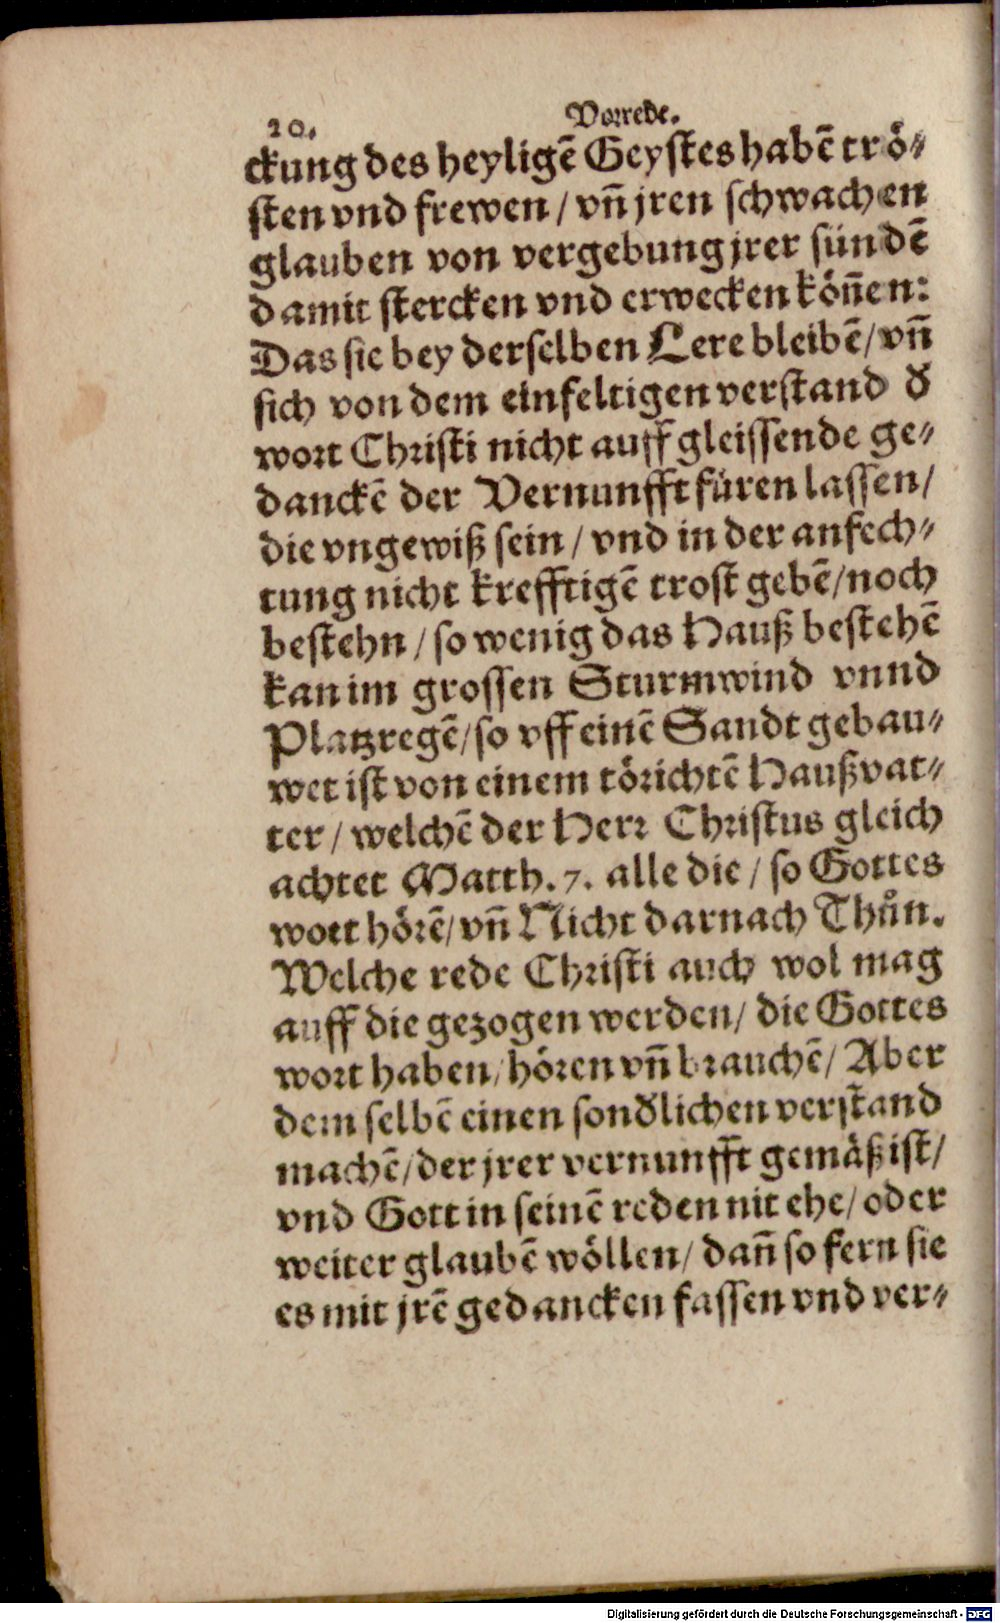 20. Vorrede.
ckung des heyligẽ Geystes habẽ trö-
sten vnd frewen / vñ jren schwachen
glauben von vergebung jrer sündẽ
damit stercken vnd erwecken köñen:
Das sie bey derselben Lere bleibẽ / vñ
sich von dem einfeltigen verstand d̕
wort Christi nicht auff gleissende ge-
danckẽ der Vernunfft füren lassen /
die vngewiß sein / vnd in der anfech-
tung nicht krefftigẽ trost gebẽ / noch
bestehn / so wenig das Hauß bestehẽ
kan im grossen Sturmwind vnnd
Platzregẽ / so vff einẽ Sandt gebau-
wet ist von einem törichtẽ Haußvat-
ter / welchẽ der Herr Christus gleich
achtet Matth. 7. alle die / so Gottes
wott hörẽ / vñ Nicht darnach Thůn.
Welche rede Christi auch wol mag
auff die gezogen werden / die Gottes
wort haben / hören vñ brauchẽ / Aber
dem selbẽ einen sond̕lichen verstand
machẽ / der jrer vernunfft gemäß ist /
vnd Gott in seinẽ reden nit ehe / oder
weiter glaubẽ wöllen / dañ so fern sie
es mit jrẽ gedancken fassen vnd ver-
Digitalisierung gefördert durch die Deutsche Forschungsgemeinschaft - DFG